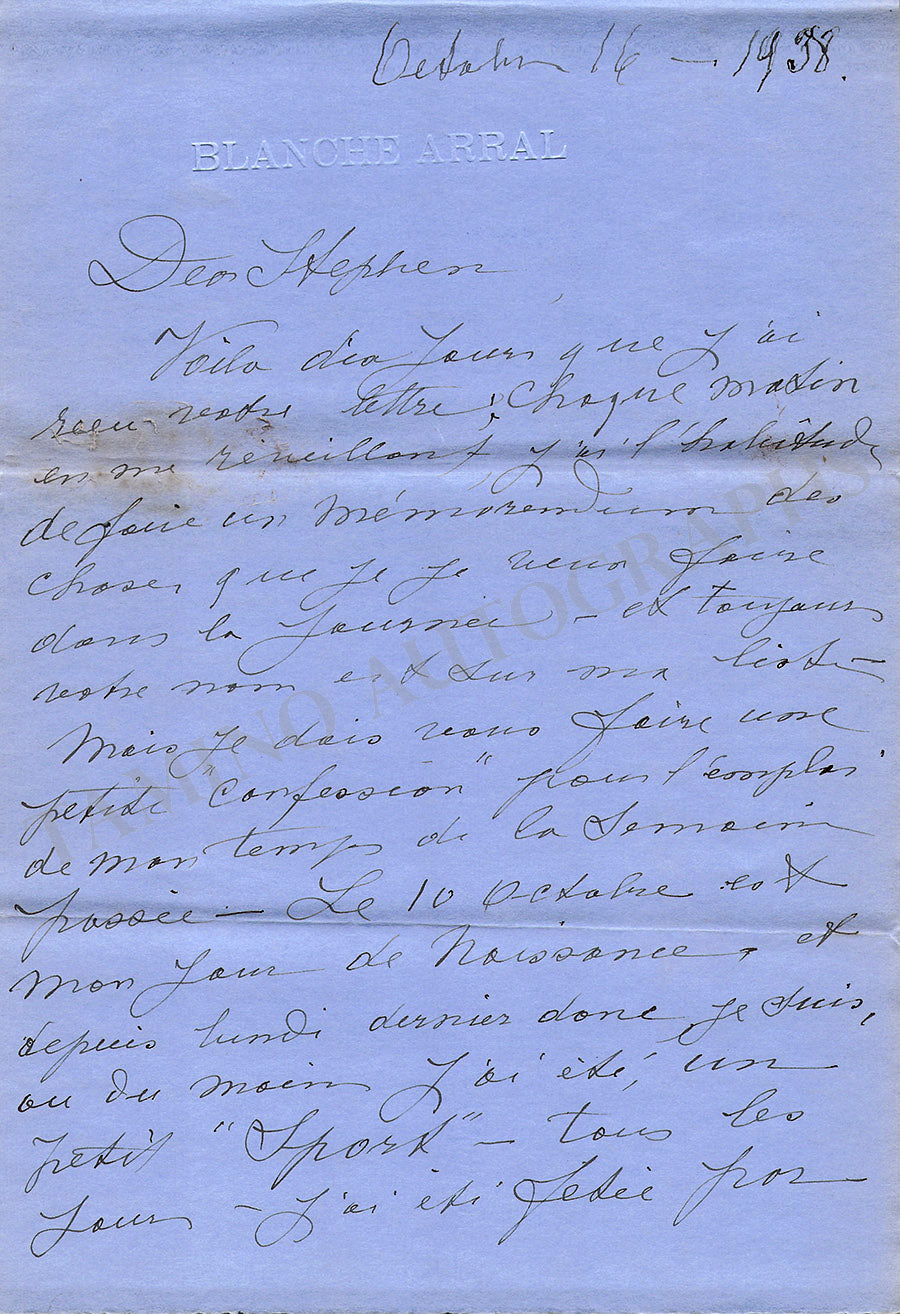 Octobre 16 — 1938.
BLANCHE ARRAL
Dear Stephen
Voila dix jours que j'ai
recu votre lettre; Chaque matin
en me réveillant, j'ai l'habitude
de faire un Mémorendum des
choses que je je veux faire
dans la journée — et toujours
votre nom est sur ma liste —
Mais je dois vous faire une
petite "Confession" pour l'emploi
de mon temps de la Semaine
passée — Le 10 Octobre est
mon jour de Naissance, et
depuis lundi dernier donc, je suis,
ou du moins j'ai été, un
petit "Sport" — tous les
jours — j'ai été fetée par
TAMINO AUTOGRAPHS